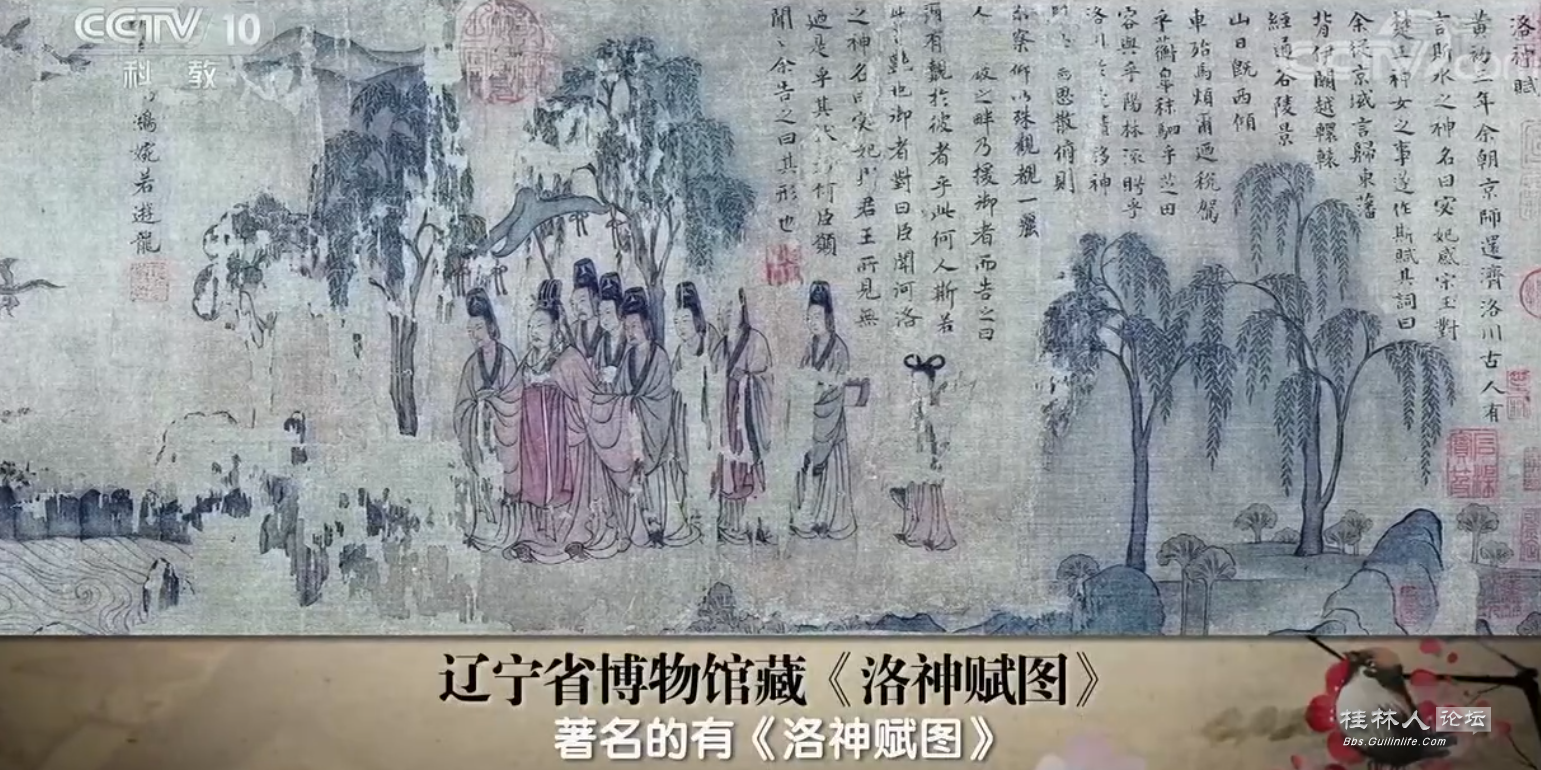 CCTV 10
科教
CCTV.com
洛神賦
黃初三年余朝京師還濟洛川古人有
言斯水之神名曰宓妃感宋玉對
楚王神女之事遂作斯賦其詞曰
余從京域言歸東藩
背伊闕越轘轅
經通谷陵景
山日既西傾
車殆馬煩爾迺稅駕
乎蘅皋秣駟乎芝田
容與乎陽林流眄乎
洛川於是精移神
思散俯則
察仰以殊觀覩一麗
人之畔乃援御者而告之曰
有覿於彼者乎此何人斯若
此之艷也御者對曰臣聞河洛
之神名曰宓妃君王所見無
迺是乎其狀若何臣願
聞之余告之曰其形也
鴻婉若遊龍
辽宁省博物馆藏《洛神赋图》
著名的有《洛神赋图》
桂林人论坛
Bbs.Guilinlife.Com